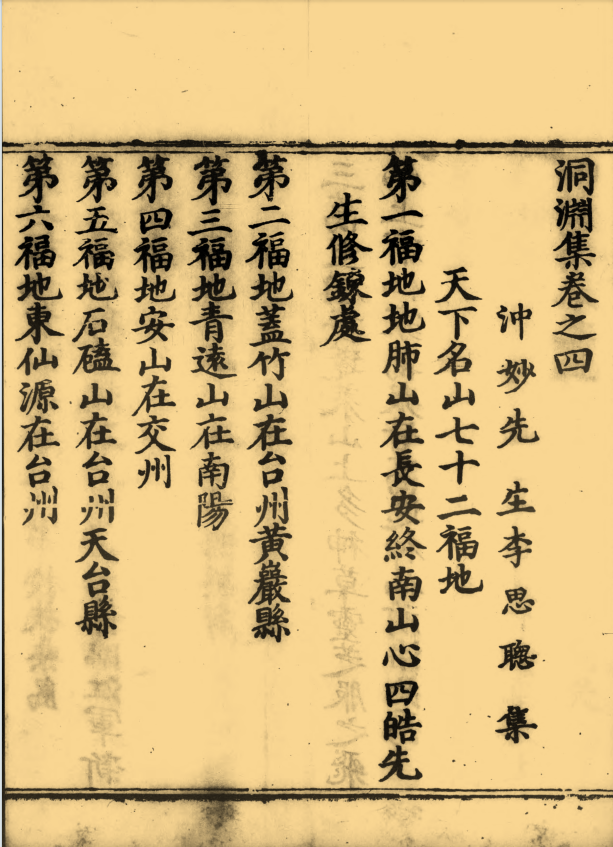 洞淵集卷之四
沖妙先生李思聰集
天下名山七十二福地
第一福地地肺山在長安終南山心四皓先
生修鍊處
第二福地蓋竹山在台州黃巖縣
第三福地青遠山在南陽
第四福地安山在交州
第五福地石磕山在台州天台縣
第六福地東仙源在台州